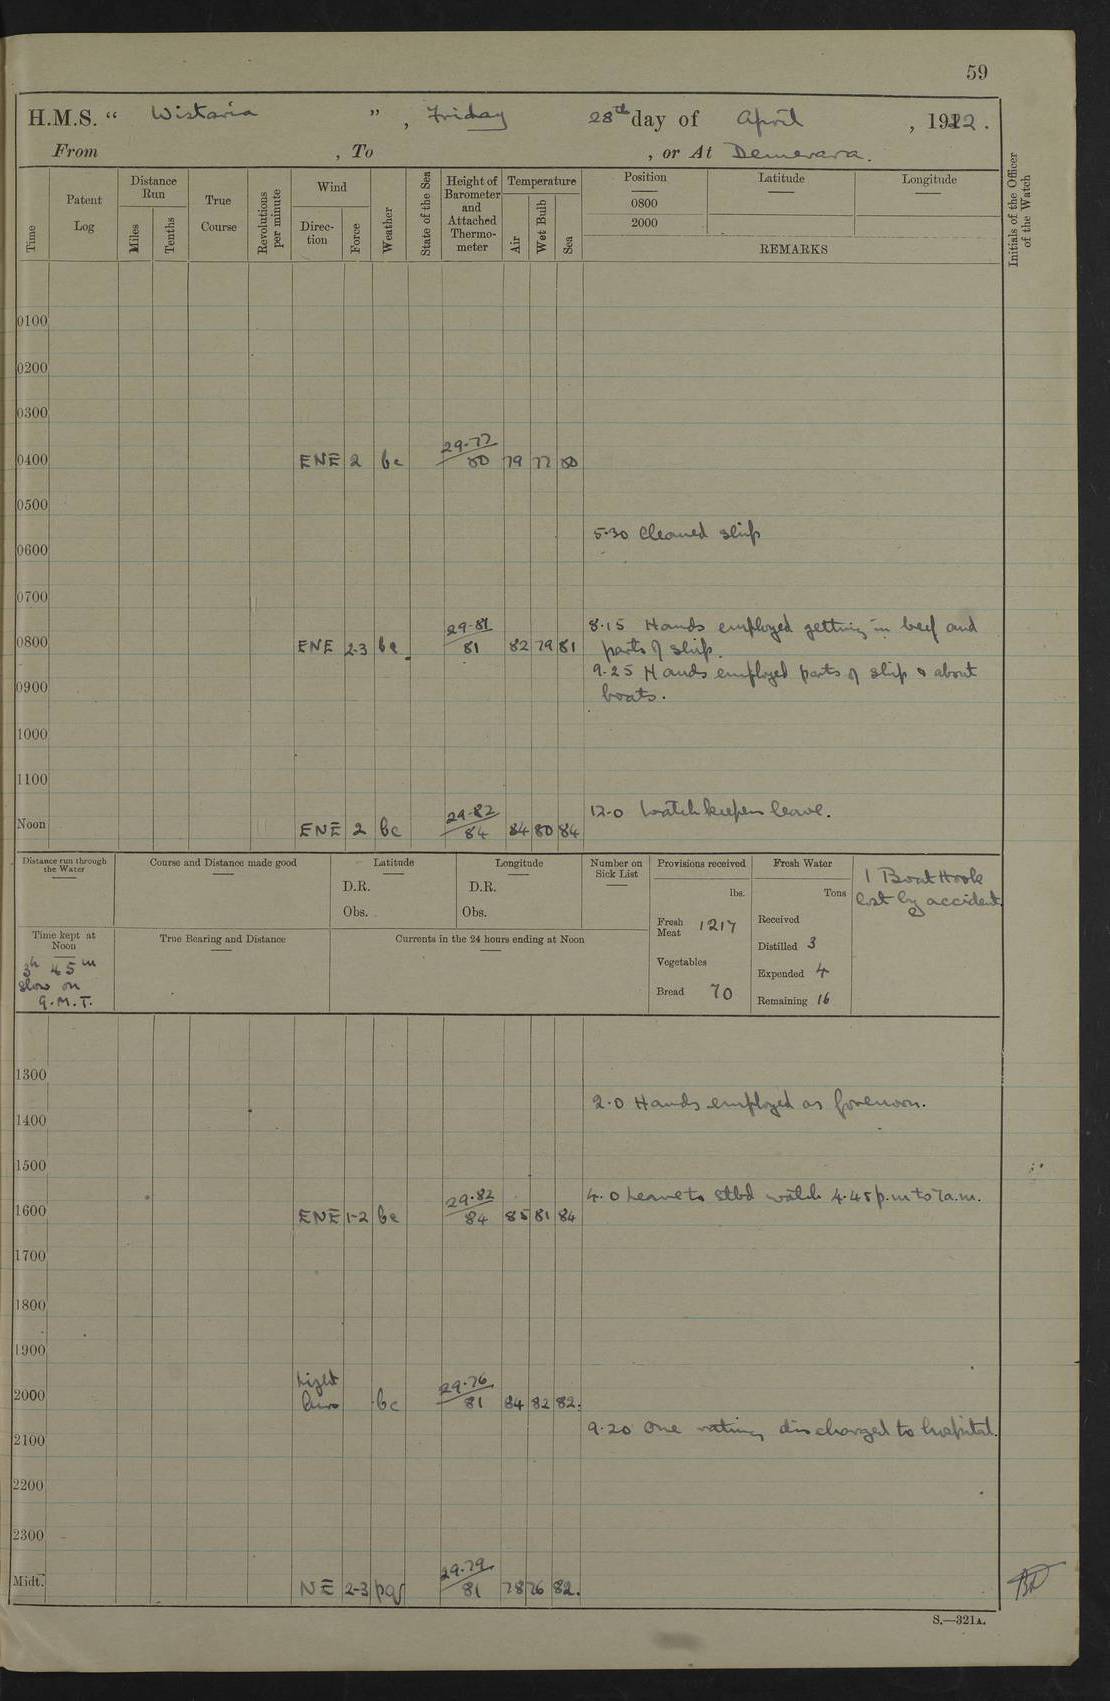 59
H.M.S. “ Wistaria ” , Friday 28th day of April , 1922.
From , To , or At Demerara.
Time
Patent Log
Distance Run
Miles
Tenths
True Course
Revolutions per minute
Wind
Direction
Force
Weather
State of the Sea
Height of Barometer and Attached Thermometer
Temperature
Air
Wet Bulb
Sea
Position Latitude Longitude
0800
2000
REMARKS
Initials of the Officer of the Watch
0100
0200
0300
0400 ENE 2 bc 29.77/80 79 77 80
0500
5.30 Cleaned ship
0600
0700
8.15 Hands employed getting in beef and
0800 ENE 2-3 bc 29.81/81 82 79 81 parts of ship.
9.25 Hands employed parts of ship & about
0900 boats.
1000
1100
12.0 Watchkeepers leave.
Noon ENE 2 bc 29.82/84 84 80 84
Distance run through the Water
Course and Distance made good
Latitude
D.R.
Obs.
Longitude
D.R.
Obs.
Number on Sick List
Provisions received
lbs.
Fresh Meat 1217
Vegetables
Bread 70
Fresh Water
Tons
Received
Distilled 3
Expended 4
Remaining 16
1 Boat Hook
lost by accident.
Time kept at Noon
3h 45m
slow on
G.M.T.
True Bearing and Distance
Currents in the 24 hours ending at Noon
1300
2.0 Hands employed as forenoon.
1400
1500
4.0 Leave to stbd watch 4.45 p.m to 7 a.m.
1600 ENE 1-2 bc 29.82/84 85 81 84
1700
1800
1900
2000 Light airs bc 29.76/81 84 82 82.
9.20 One rating discharged to hospital.
2100
2200
2300
Midt. NE 2-3 pq 29.79/81 78 76 82.
S.—321A.